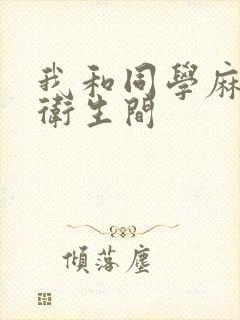 我和同學麻
衛生間
傾落塵